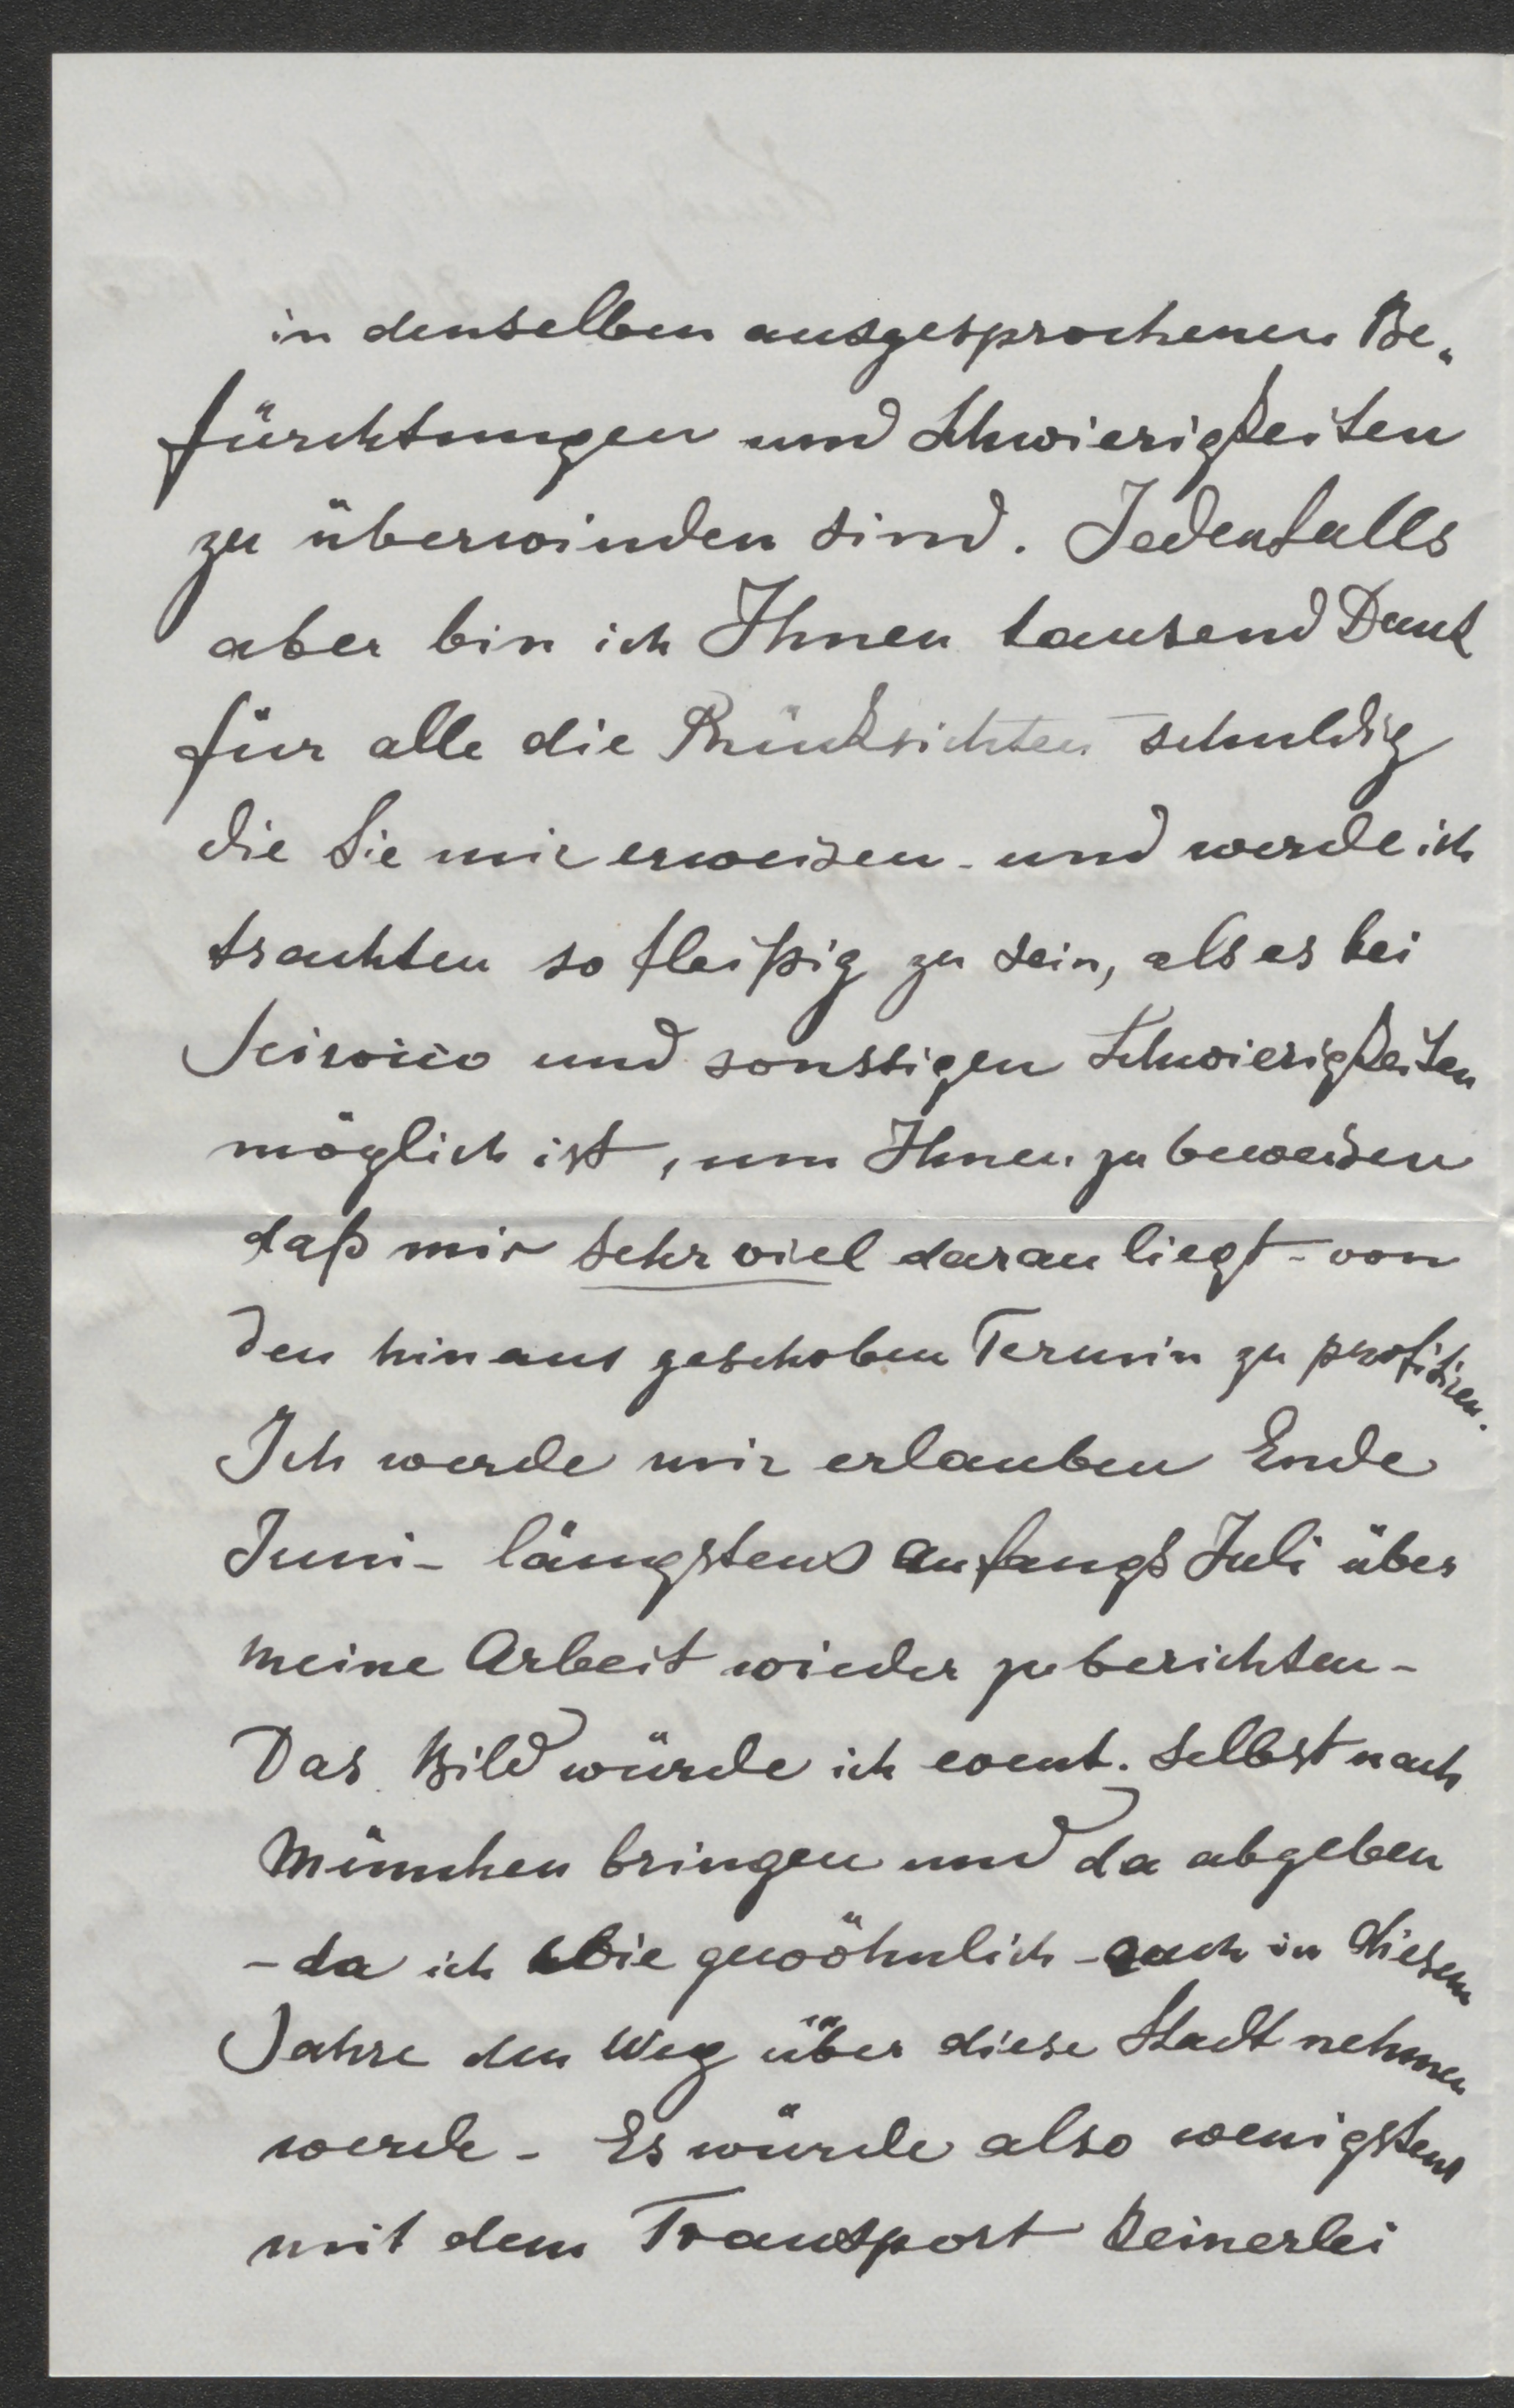 in denselben ausgesprochenen Be„
fürchtungen und Schwierigkeiten
zu überwinden sind. Jedenfalls
aber bin ich Ihnen tausend Dank
für alle die Rücksichten schuldig
die Sie mir erweisen - und werde ich
trachten so fleißig zu sein, als es bei
Scirocco und sonstigen Schwierigkeiten
möglich ist, um Ihnen zu beweisen
daß mir sehr viel daran liegt - von
den hinaus geschoben Termin zu profitiren.
Ich werde mir erlauben Ende
Juni - längstens anfangs Juli über
meine Arbeit wieder zu berichten -
Das Bild würde ich event. selbst nach
München bringen und da abgeben
- da ich wie gewöhnlich - auch in diesem
Jahre den Weg über diese Stadt nehmen
werde - Es würde also wenigstens
mit dem Transport keinerlei